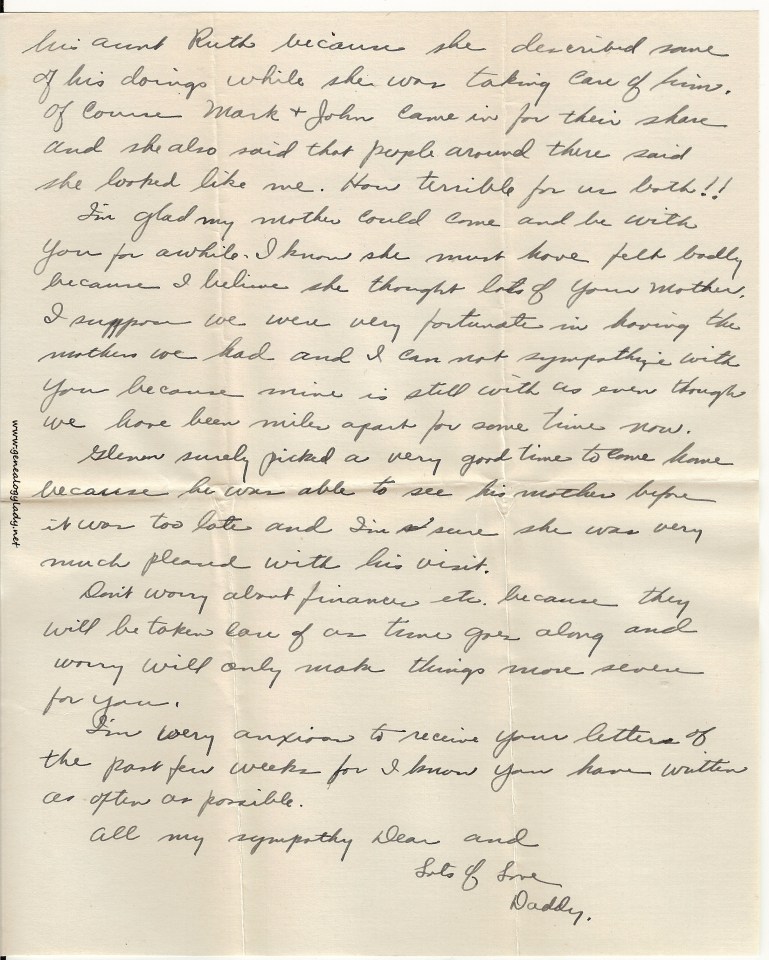 his aunt Ruth because she described some
of his doings while she was taking care of him.
Of course Mark + John came in for their share
and she also said that people around there said
she looked like me. How terrible for us both!!
I'm glad my mother could come and be with
you for awhile. I know she must have felt badly
because I believe she thought lots of your mother.
I suppose we were very fortunate in having the
mothers we had and I can not sympathize with
you because mine is still with us even though
we have been miles apart for some time now.
Glenn surely picked a very good time to come home
because he was able to see his mother before
it was too late and I'm sure she was very
much pleased with his visit.
Don't worry about finances etc. because they
will be taken care of as time goes along and
worry will only make things more severe
for you.
I'm very anxious to receive your letters of
the past few weeks for I know you have written
as often as possible.
All my sympathy Dear and
Lots of Love
Daddy.
www.genealogylady.net